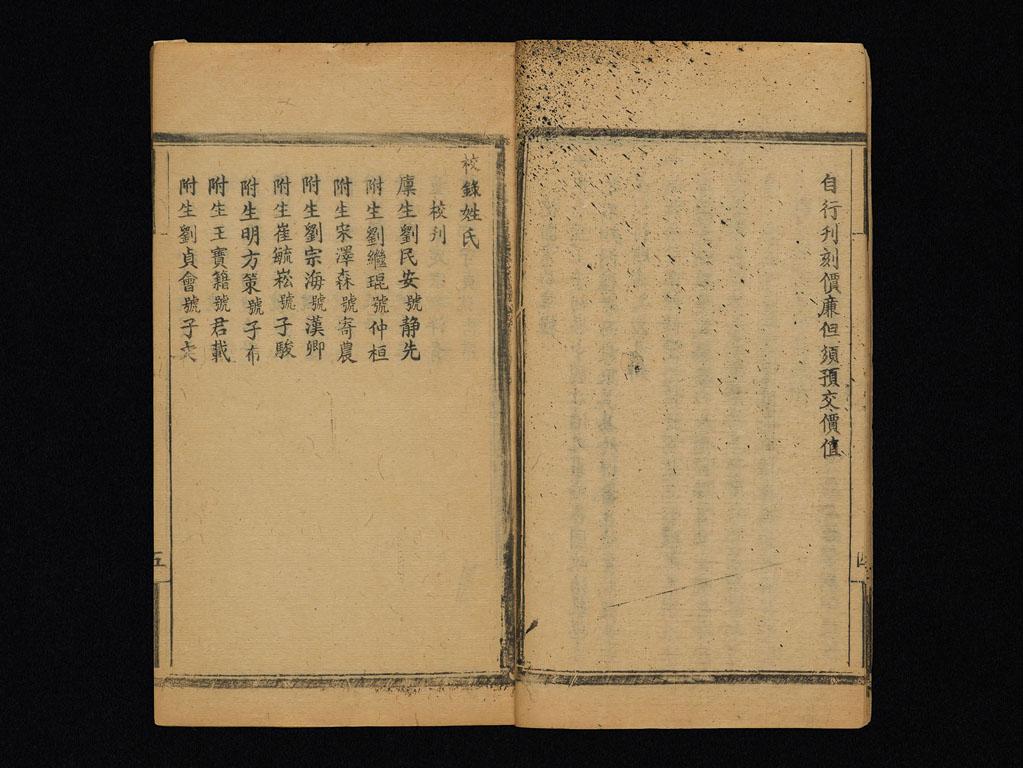 自行刊刻價廉但須預交價值
校錄姓氏
校刊
廩生劉民安號静先
附生劉繼琨號仲桓
附生宋澤森號寄農
附生劉宗海號漢卿
附生崔毓崧號子駿
附生明方策號子布
附生王寶籍號君載
附生劉貞會號子文
五